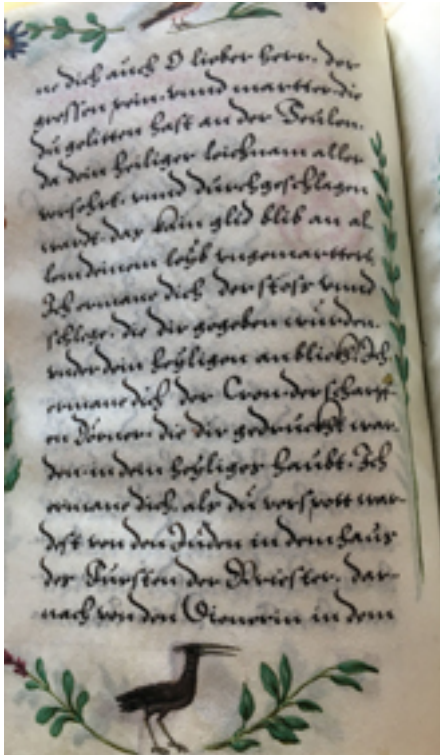 ne dich auch O lieber herr, der
grossen pein, vnnd martter die
du gelitten hast an der Seulen,
da dein heiliger leichnam aller
versehrt, vnnd durchgeschlagen
wardt, das kain glid blib an al
lem deinem leÿb vngemarttert
Ich ermane dich der stoss vnnd
schlege, die dir gegeben wurden,
vnder dein heÿligen anblickh, Ich
ermane dich der Cron der scharpf
en Dörner, die dir gedruckht war
den in dem heÿliger haubt, Ich
ermane dich, als du verspott war
dest von den Juden in dem haus
des Fürsten der Priester, dar-
nach von den Dienerin in dem